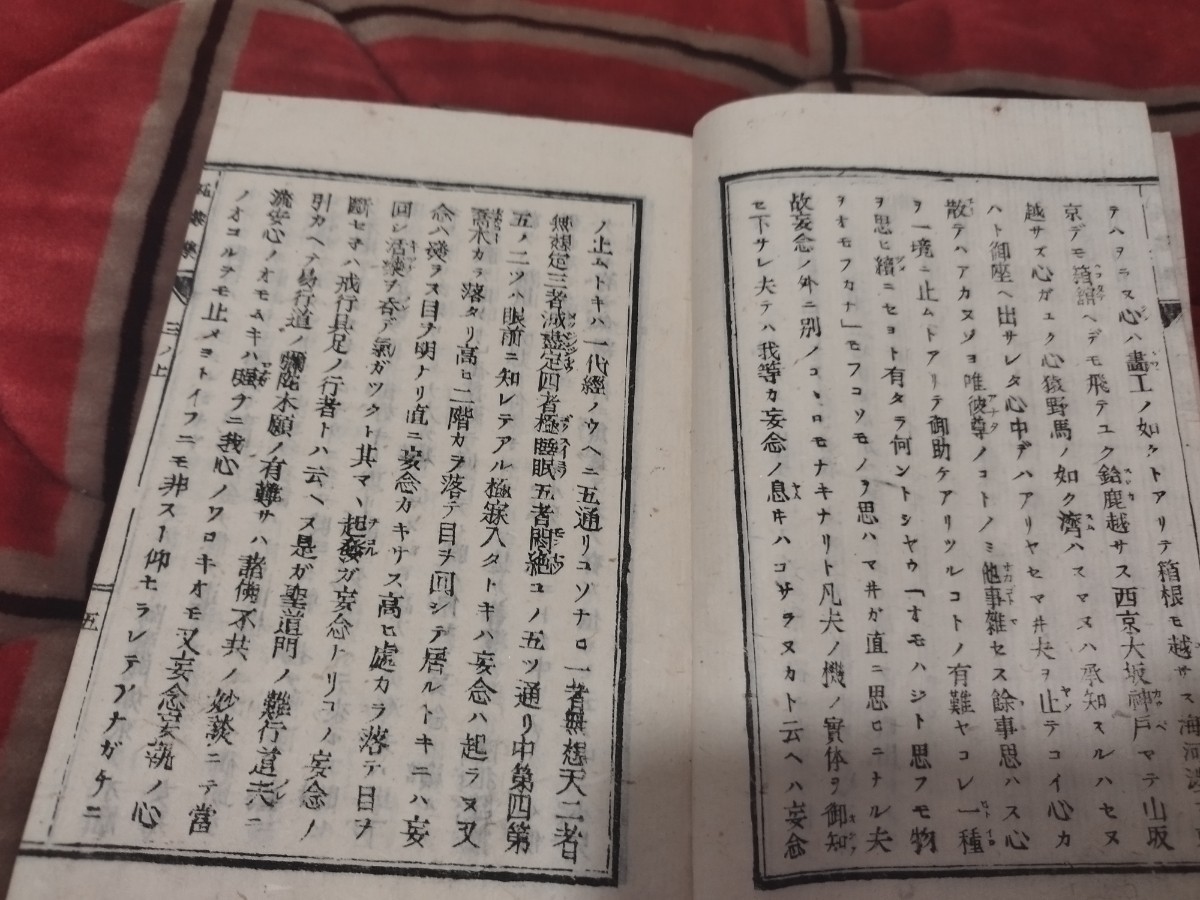 テハタラス心ハ畵工ノ如クトアリテ箱根モ越サス海河
京デモ箱舘ヘデモ飛テユク鈴鹿越サス西京大坂神戸マテ山坂
越サズ心ガユク心猿野馬ノ如ク濟ハマヌハ承知スルハセヌ
ハト御座ヘ出サレタ心中デハアリヤセマ井夫ヲ止テコイ心カ
散テハアカヌゾヨ唯彼尊ノコトノミ他事雜セス餘事思ハス心
ヲ一境ニ止ムトアリテ御助ケアリツルコトノ有難ヤコレ一種
ヲ思ヒ續ニセヨト有タラ何ントシヤウ「オモハジト思フモ物
ヲオモフカナ」モフコソモノヲ思ハマ井ガ直ニ思ヒニナル夫
故妄念ノ外ニ別ノコヽロモナキナリト凡夫ノ機ノ實体ヲ御知
セ下サレ夫テハ我等カ妄念ノ息ヰハコサラヌカト云ヘハ妄念
ノ止ムトキハ一代經ノウヘニ五通リコソナロ一者無想天二者
無想定三者滅盡定四者極睡眠五者悶絶コノ五ツ通リ中第四第
五ノ二ツハ眼前ニ知レテアル極寐入タトキハ妄念ハ起ラヌ又
高木カラ落タリ高ヒ二階カラ落テ目ヲ回シテ居ルトキニハ妄
念ハ殘ラス目ヲ明ナリ直ニ妄念カキサス高ヒ處カラ落テ目ヲ
回シ活湊ヲ呑デ氣ガツクト其マヽ起ルガ妄念トリコノ妄念ノ
斷セネハ戒行具足ノ行者トハ云ヘス是ガ聖道門ノ難行道夫ニ
引カヘテ易行道ノ彌陀本願ノ有難サハ諸佛不共ノ妙談ニテ當
流安心ノオモムキハ ナニ我心ノワロキオモ又妄念妄執ノ心
ノオコルヲモ止メヨトイフニモ非スト仰セラレテアナガチニ
三ノ上
五